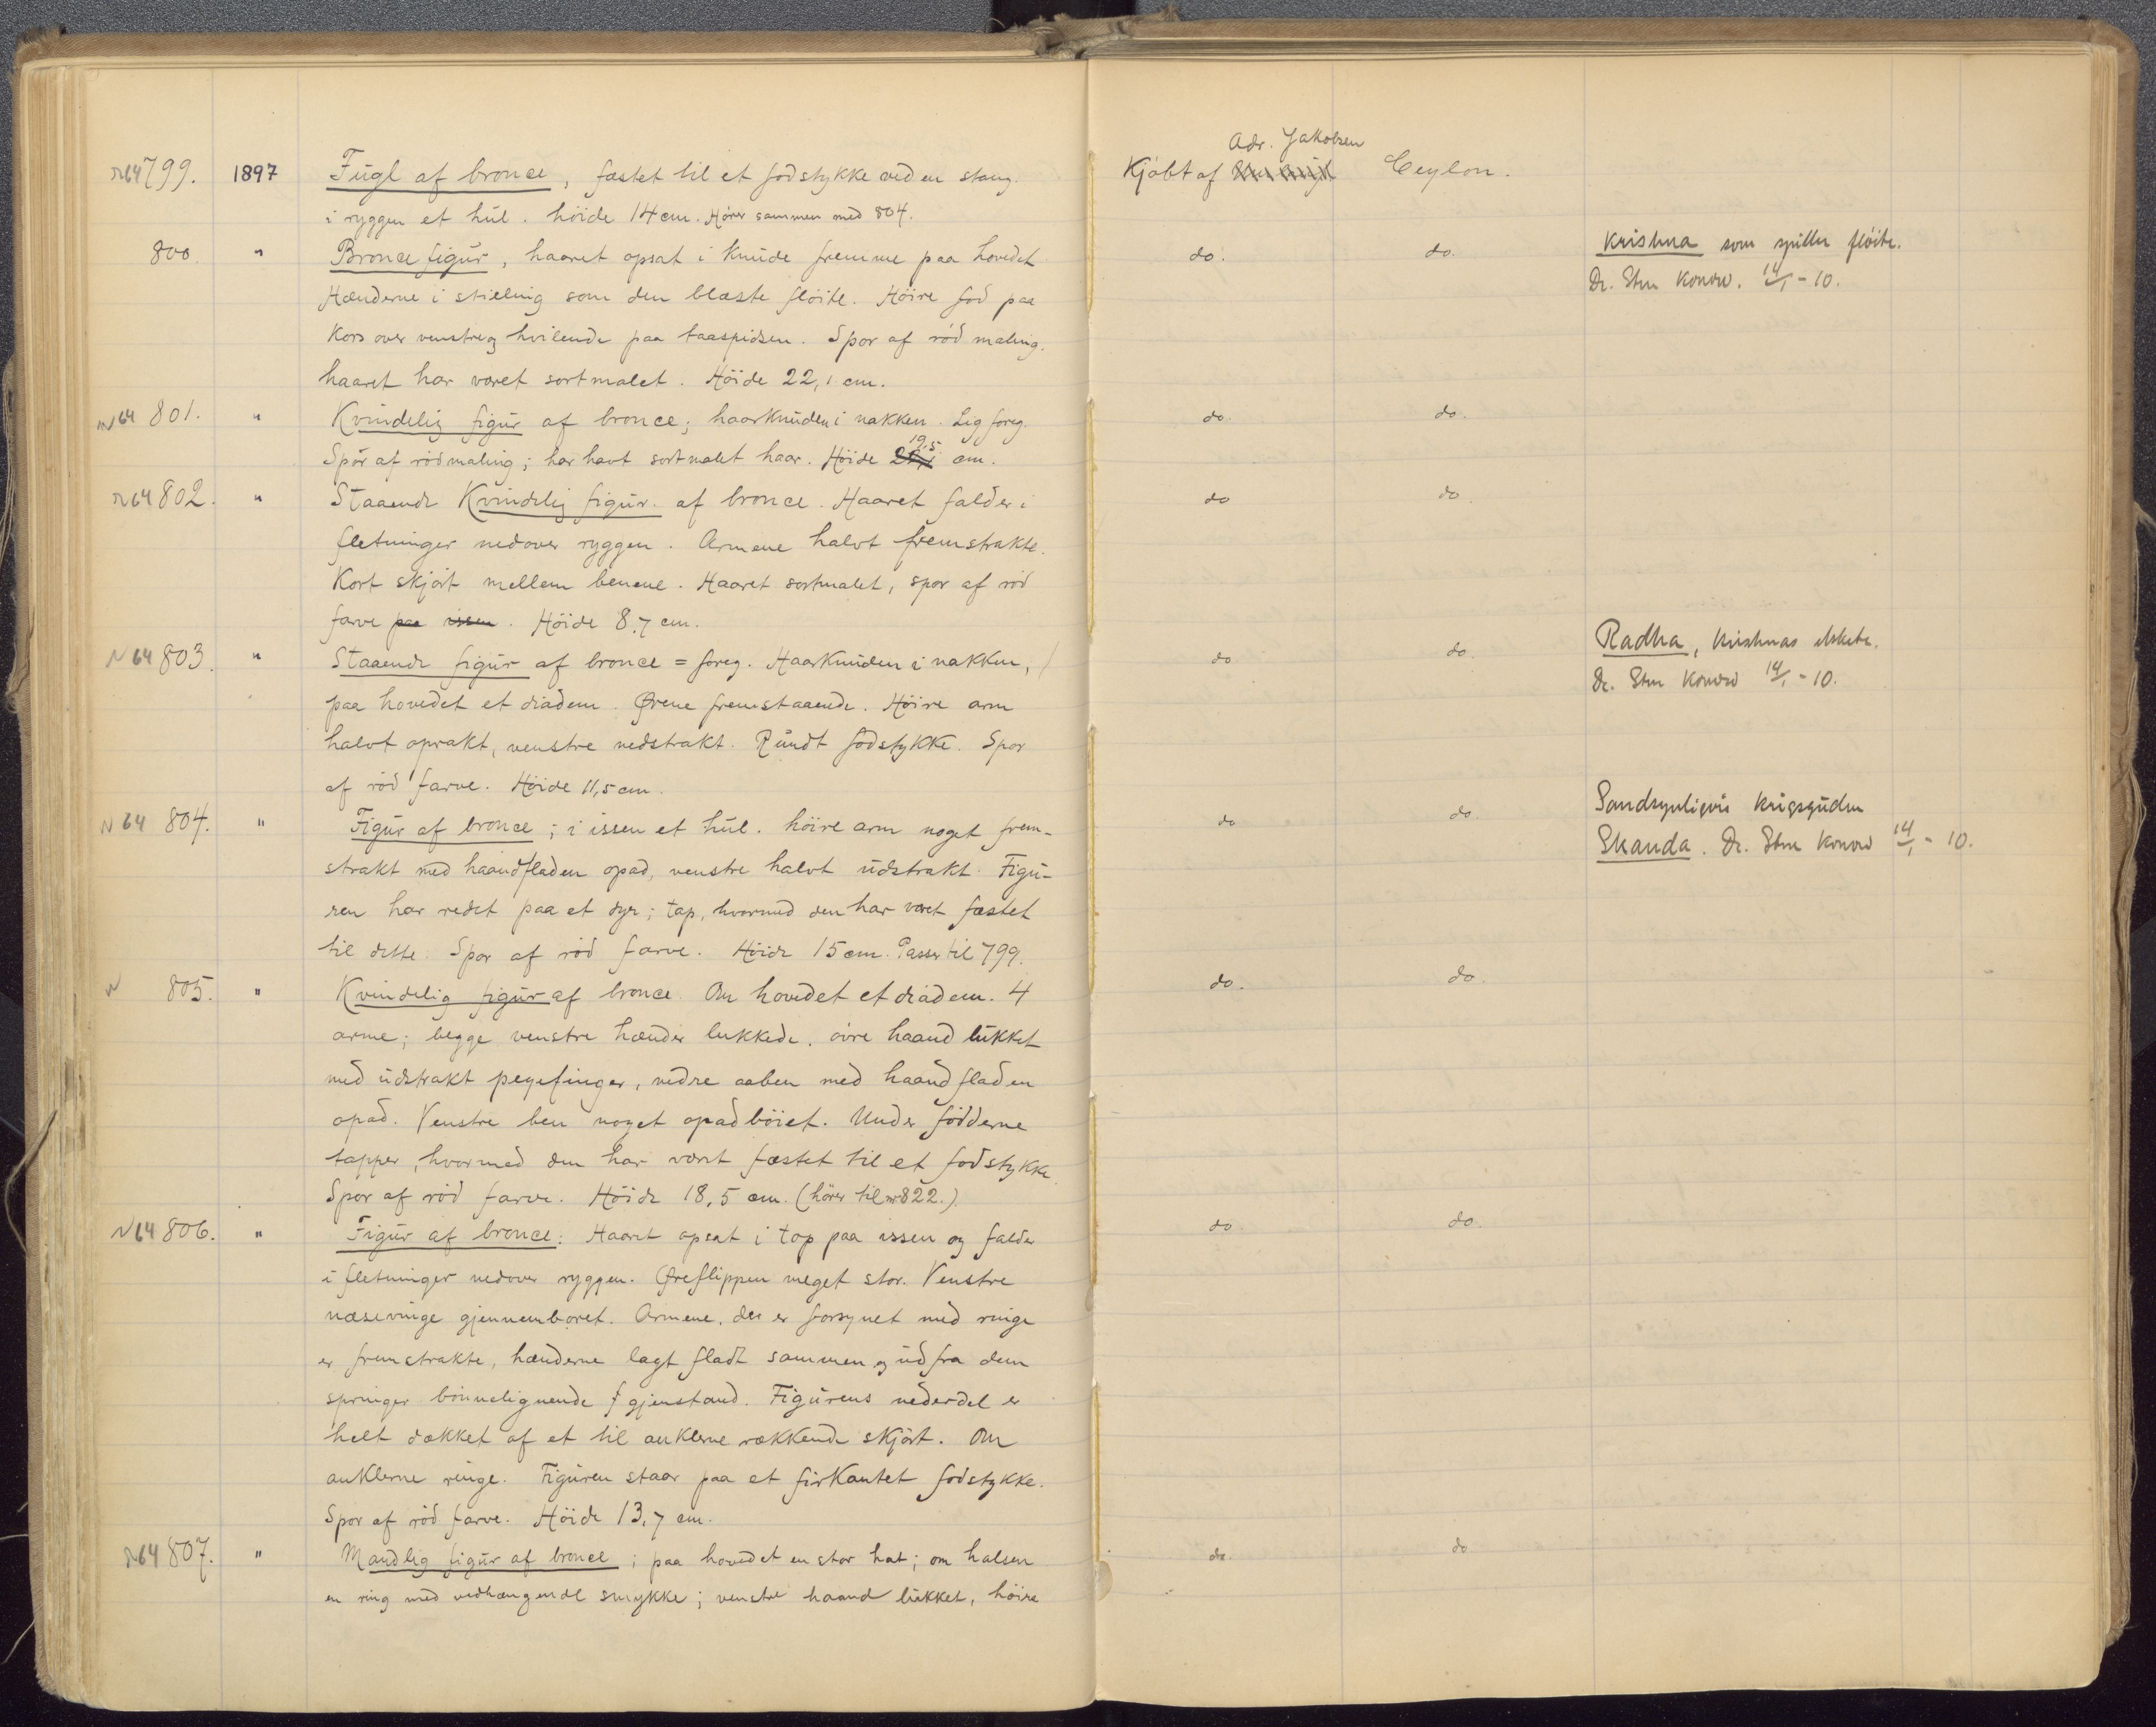 N64 799. 1897 Fugl af bronce, fæstet til et fodstykke ved en stang. Kjøbt af Adr. Jakobsen Ceylon.
i ryggen et hul. höide 14 cm. Hører sammen med 804.
800 " Broncefigur, haaret opsat i knude fremme paa hovedet do. do. Krishna som spiller fløite.
Hænderne i stilling som den blæste flöite. Höire fod paa Dr. Sten Konow. 14/1 - 10.
Kors over venstre og hvilende paa taaspidsen. Spor af röd maling.
haaret har været sortmalet. Höide 22,1 cm.
N64 801. " Kvindelig figur af bronce; haarknuden i nakken. Lig foreg. do. do.
Spor af rödmaling; har havt sortmalet haar. Höide 19,5 cm.
N64 802. " Staaende Kvindelig figur af bronce. Haaret falder i do do.
fletninger nedover ryggen. Armene halvt fremstrakte.
Kort skjört mellem benene. Haaret sortmalet, spor af röd
farve paa issen. Höide 8,7 cm.
N64 803. " Staaende figur af bronce = foreg. Haarknuden i nakken, do do. Radha, Krishnas elskede.
paa hovedet et diadem. Ørene fremstaaende. Höire arm Dr. Sten Konow 14/1 - 10.
halvt oprakt, venstre nedstrakt. Rundt fodstykke. Spor
af röd farve. Höide 11,5 cm.
N64 804. " Figur af bronce; i issen et hul. höire arm noget frem- do do. Sandsynligvis krigsguden
strakt med haandfladen opad, venstre halvt udstrakt. Figu- Skanda. Dr. Sten Konow 14/1 - 10.
ren har redet paa et dyr; tap, hvormed den har været fæstet
til dette. Spor af röd farve. Höide 15 cm. Passer til 799.
N 805. " Kvindelig figur af bronce. Om hovedet et diadem. 4 do. do.
arme; begge venstre hænder lukkede. övre haand lukket
med udstrakt pegefinger, nedre aaben med haandfladen
opad. Venstre ben noget opadböiet. Under födderne
tapper, hvormed den har været fæstet til et fodstykke.
Spor af röd farve. Höide 18,5 cm. (hörer til nr 822.)
N64 806. " Figur af bronce. Haaret opsat i top paa issen og falder do do.
i fletninger nedover ryggen. Øreflippen meget stor. Venstre
næsevinge gjennemboret. Armene, der er forsynet med ringe
er fremstrakte, hænderne lagt fladt sammen og ud fra dem
springer bönnelignende gjenstand. Figurens nederdel er
helt dækket af et til anklerne rækkende skjört. Om
anklerne ringe. Figuren staar paa et firkantet fodstykke.
Spor af röd farve. Höide 13,7 cm.
N64 807. " Mandlig figur af bronce; paa hovedet en stor hat; om halsen do. do
en ring med vedhængende smykke; venstre haand lukket, höire